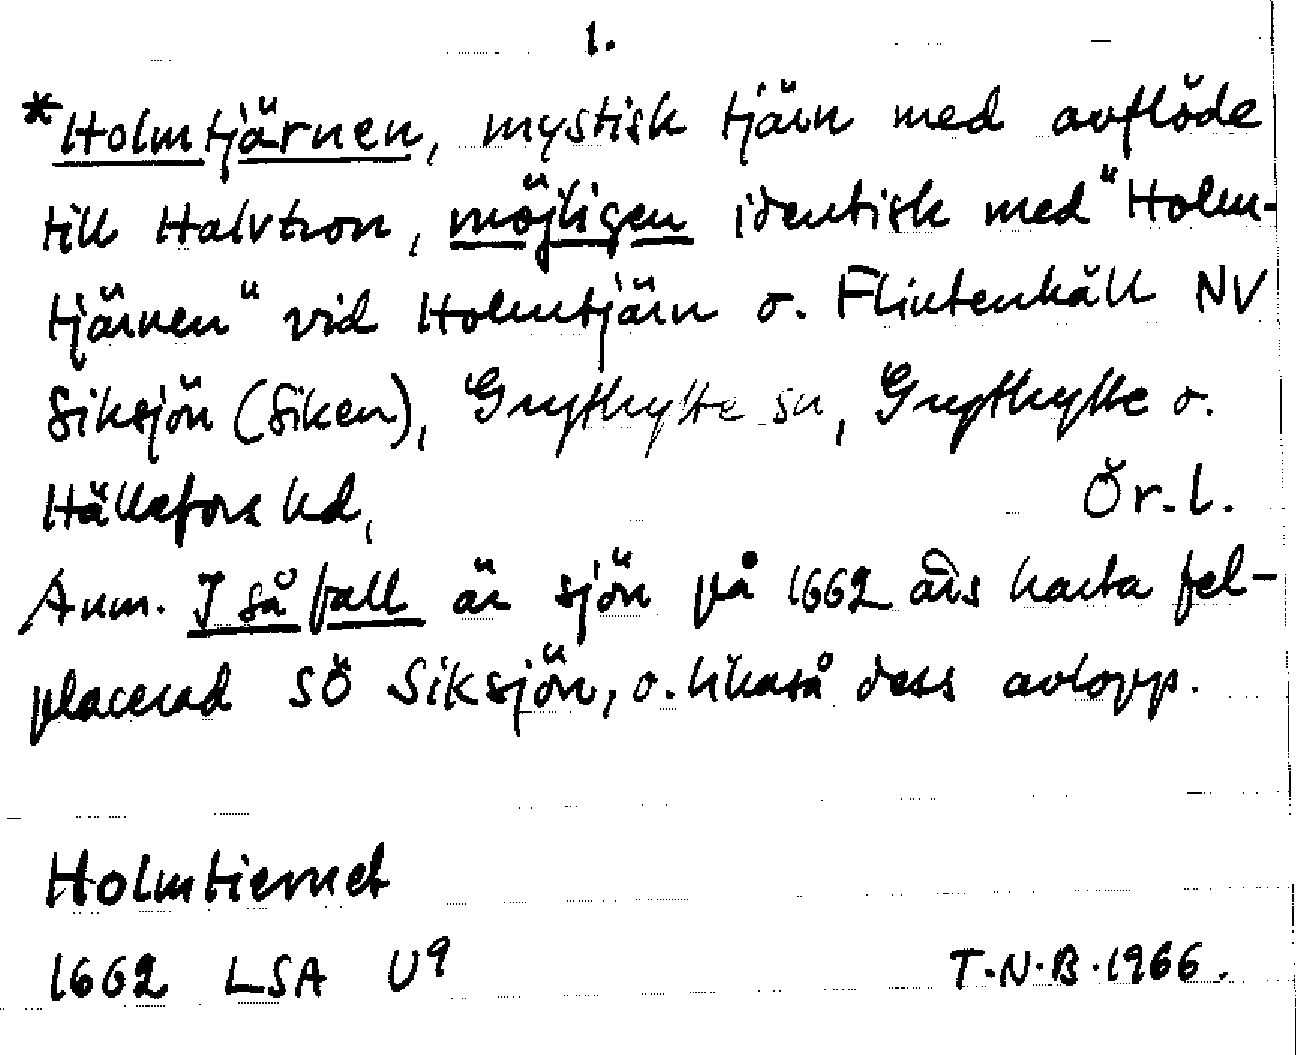 1.
*Holmtjärnen, mystisk tjärn med avflöde
till Halvtron, möjligen identisk med "Holm-
tjärnen" vid Holmtjärn o. Flintenhäll NV
Siksjön (Siken), Grythytte sn, Grythytte o.
Hällefors hd, Ör.l.
Anm. I så fall är sjön på 1662 års karta fel-
placerad SÖ Siksjön, o. likaså dess avlopp.
Holmtiernet
1662 LSA U9 T.N.B.1966.